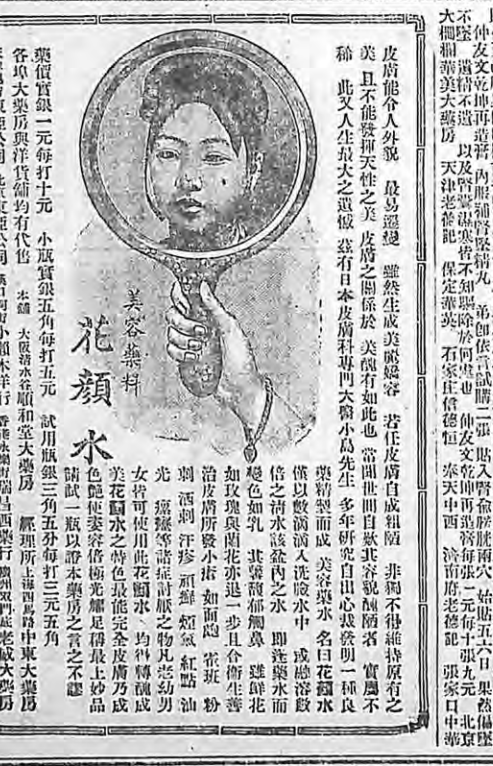 仲友文乾坤再造膏 內服補腎堅精丸 弟卽依言試購二張 貼入腎俞 兩穴 始貼五六日 果然
不墜 遺精不遺 以及腎囊濕寒皆不知驅除於何處也 仲友文乾坤再造膏每張一元每十張九元 北京
大柵欄華美大藥房 天津老德記 保定華英 石家庄信德恒 奉天中西 濟南府老德記 張家口中華
皮膚能令人外貌 最易變 雖然生成美麗 容 若任皮膚自成粗陋 非獨不得維持原有之
美 且不能發揮天性之美 皮膚之關係於 美醜有如此也 當聞世間自歎其容貌醜陋者 實屬不
稀 此又人生最大之遺憾 茲有日本皮膚科專門大醫小島先生 多年研究自出心裁發明一種良
藥精製而成 美容藥水 名曰花顏水
僅以數滴滴入洗臉水中 或總溶數
倍之清水該盆內之水 卽 藥水而
變色如乳 其馨馥郁觸鼻 雖鮮花
如玫瑰與蘭花亦退一步且合衛生善
治皮膚所發小瘡 如面皰 雀斑 粉
刺 酒刺 汗疹 頑癬 煙氣 紅點 油
光 等諸症討厭之物凡老幼男
女皆可使用此花顏水 均得轉醜成
美花顏水之特色最能完全皮膚乃成
色艷使姿容倍極光耀足稱最上妙品
請試一瓶以證本藥房之言之不謬
美容藥料
花顏水
藥價實銀一元每打十元 小瓶實銀五角每打五元 試用瓶銀三角五分每打三元五角
各埠大藥房與洋貨舖均有代售 本舖 大阪清水谷順和堂大藥房 經理所上海四馬路中東大藥房